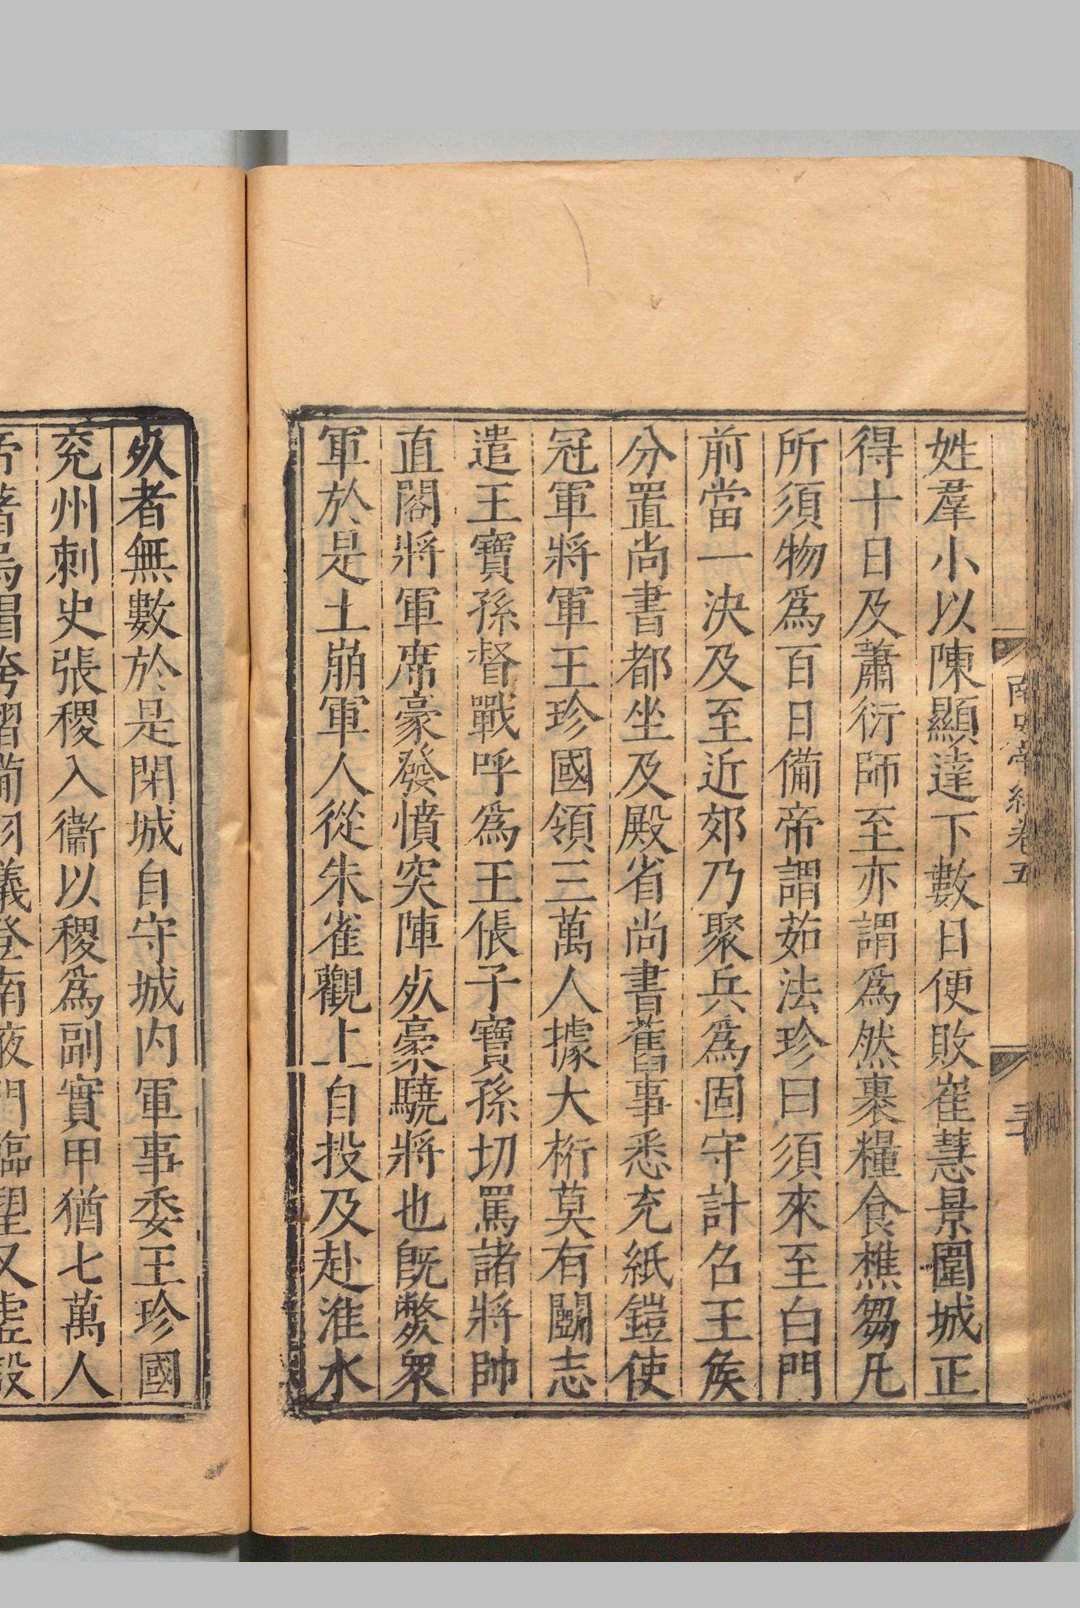 姓羣小以陳顯達下數日便敗崔慧景圍城正
得十日及蕭衍師至亦謂爲然裹糧食樵芻凡
所須物爲百日備帝謂茹法珍曰須來至白門
前當一決及至近郊乃聚兵爲固守計召王侯
分置尚書都坐及殿省尚書舊事悉充紙鎧使
冠軍將軍王珍國領三萬人據大桁莫有鬭志
遣王寶孫督戰呼爲王倀子寶孫切罵諸將帥
直閣將軍席豪發憤突陣死豪驍將也旣斃衆
軍於是土崩軍人從朱雀觀上自投及赴淮水
死者無數於是閉城自守城内軍事委王珍國
兖州刺史張稷入衞以稷爲副實甲猶七萬人
帝著烏帽袴褶備羽儀登南掖門臨望又虚設
南史帝紀卷五